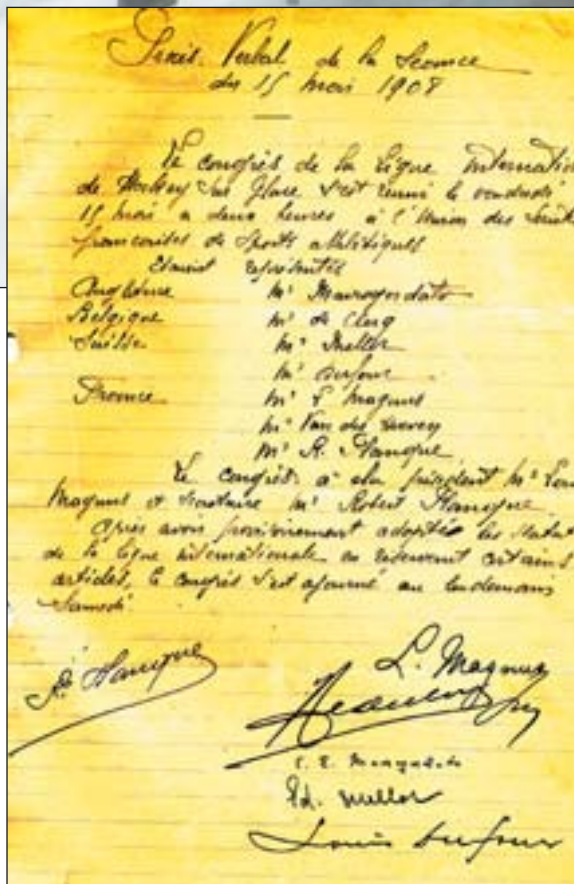 Procès-Verbal de la Séance
du 15 mai 1908
Le congrès de la Ligue Internation
de Hockey sur Glace s'est réuni le vendredi
15 mai à deux heures à l'Union des Sociét
françaises de Sports athlétiques
Etaient représentés
Angleterre Mr Mavrogordato
Belgique Mr de Clerq
Suisse Mr Mellor
Mr Dufour
France Mr L Magnus
Mr Van der
Mr R. Planque
Le congrès a élu président Mr Loui
Magnus et secrétaire Mr Robert Planque
Après avoir provisoirement adopté les statut
de la ligue internationale en réservant certains
articles, le congrès s'est ajourné au lendemain
Samedi
R. Planque
L. Magnus
Ed. Mellor
Louis Dufour